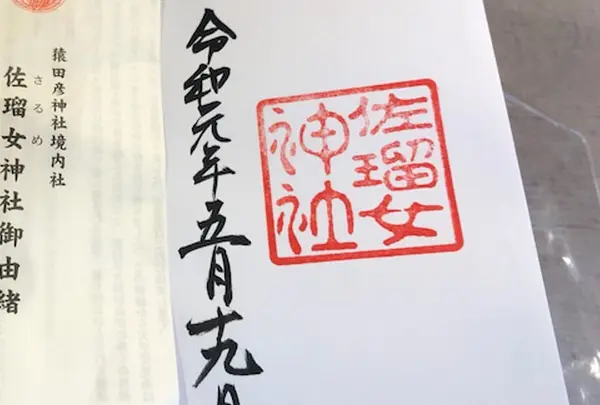 佐瑠女
神社
令和元年五月十九日
猿田彦神社境内社
さるめ
佐瑠女神社御由緒